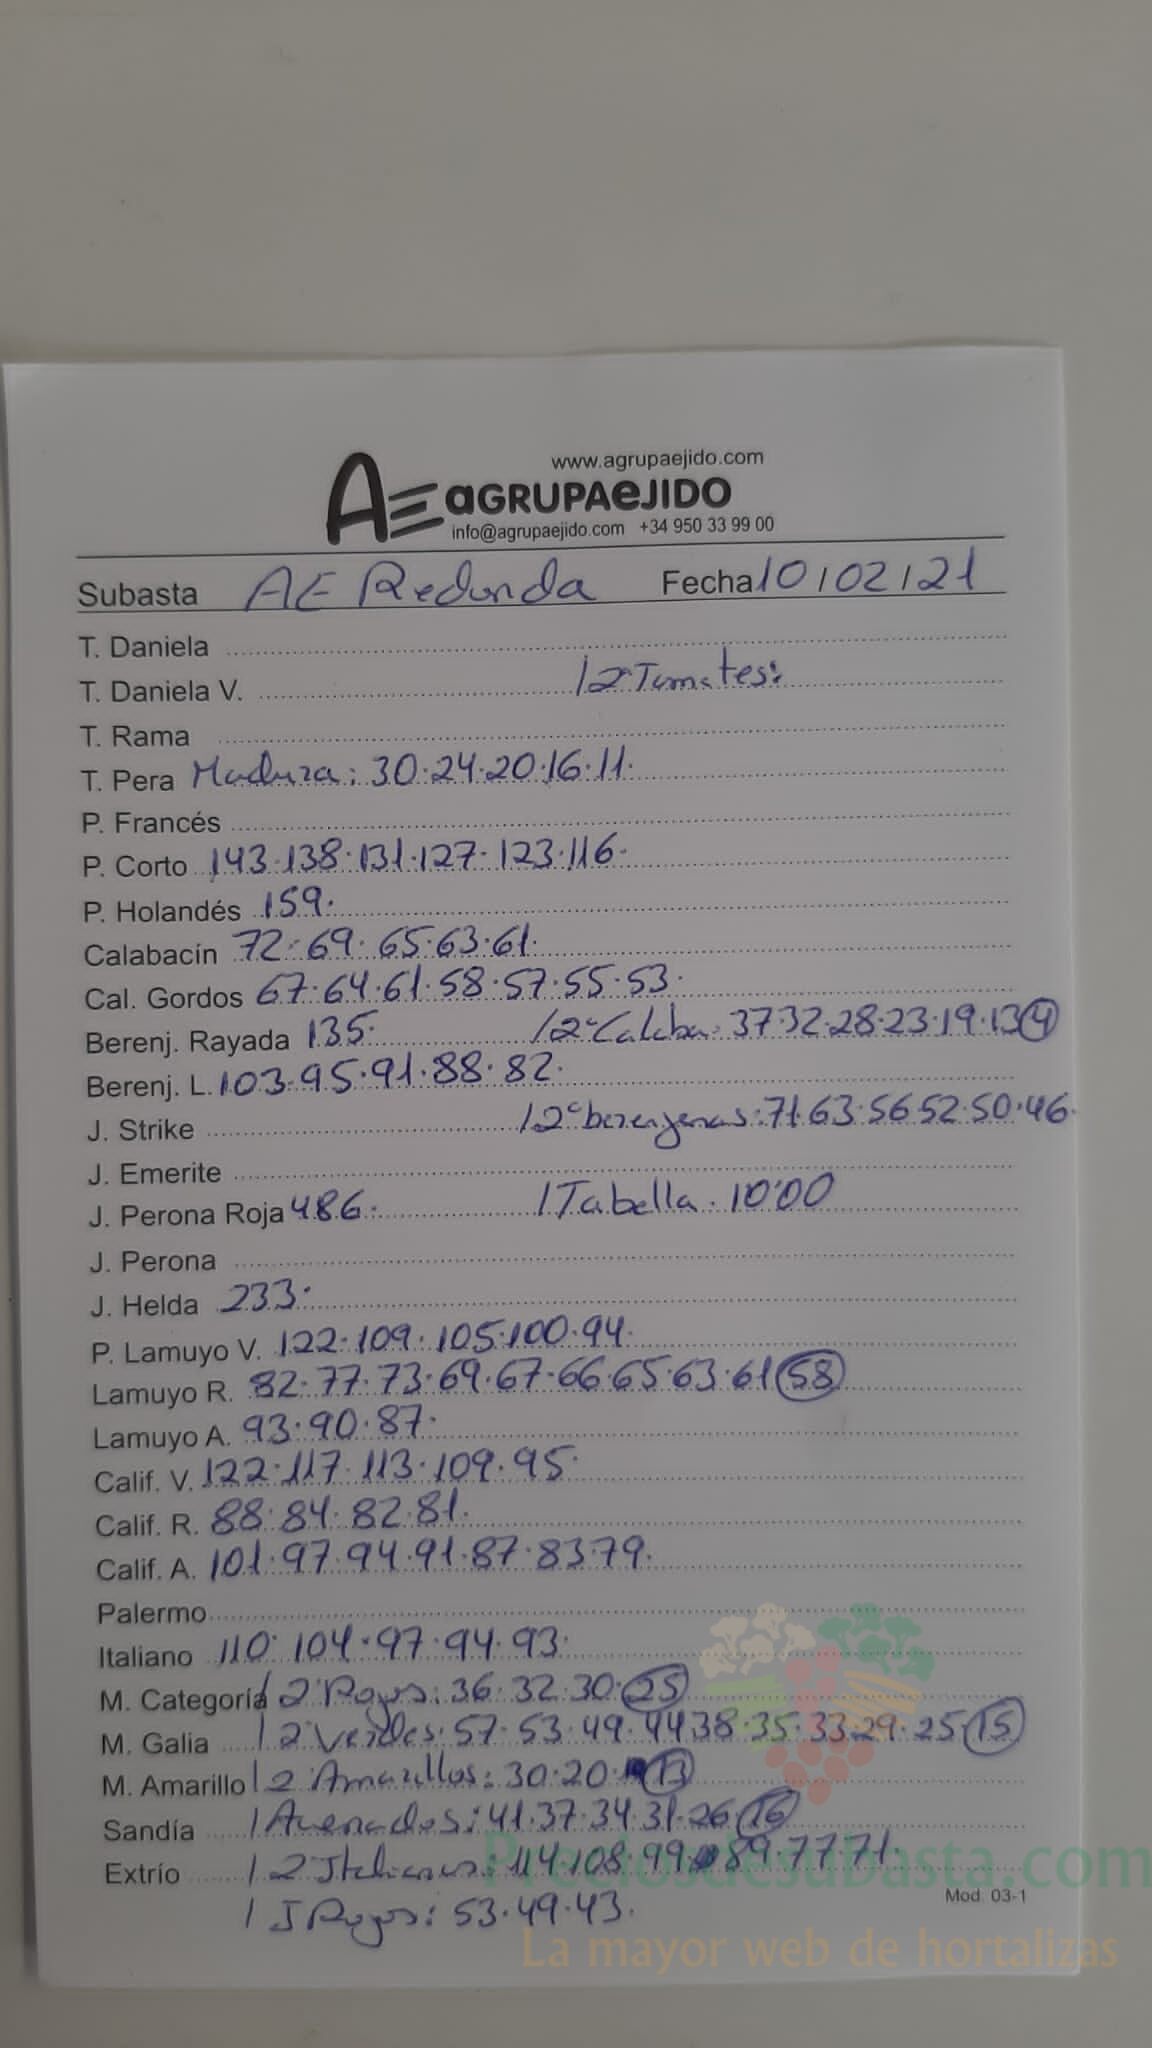 www.agrupaejido.com
AE aGRUPAeJIDO
info@agrupaejido.com +34 950 33 99 00
Subasta AE Redonda Fecha 10/02/21
T. Daniela
T. Daniela V. / 2ª Tomates:
T. Rama
T. Pera Madura: 30.24.20.16.11.
P. Francés
P. Corto 143.138.131.127.123.116.
P. Holandés 159.
Calabacín 72.69.65.63.61.
Cal. Gordos 67.64.61.58.57.55.53.
Berenj. Rayada 135. / 2ª Calaba: 37.32.28.23.19.13 4
Berenj. L. 103.95.91.88.82.
J. Strike / 2ª berenjenas: 71.63.56.52.50.46.
J. Emerite
J. Perona Roja 486. / Tabella. 10'00
J. Perona
J. Helda 233.
P. Lamuyo V. 122.109.105.100.94.
Lamuyo R. 82.77.73.69.67.66.65.63.61 58
Lamuyo A. 93.90.87.
Calif. V. 122.117.113.109.95.
Calif. R. 88.84.82.81.
Calif. A. 101.97.94.91.87.83.79.
Palermo
Italiano 110.104.97.94.93.
M. Categoría / 2ª Rojos: 36.32.30. 25
M. Galia / 2 Verdes: 57.53.49.44.38.35.33.29.25 15
M. Amarillo / 2ª Amarillos: 30.20. 13
Sandía / Asurados: 41.37.34.31.26. 16
Extrío / 2 Italianos: 114.108.99.89.77.71.
/ J Rojos: 53.49.43.
Mod. 03-1
Preciosdesubasta.com
La mayor web de hortalizas